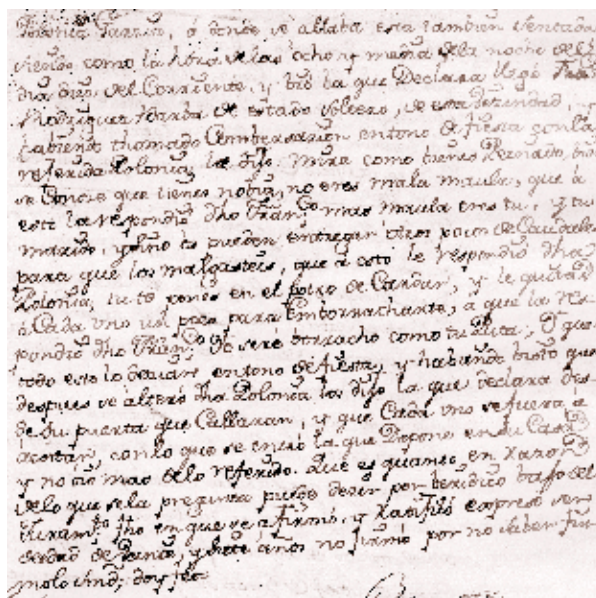 Polonia Garzon, o donde se allaba esta tambien sentada
siendo como la hora de las ocho y media de la noche del
dia dies del Corriente, y bio la que Declara llego
Rodriguez de estado soltero, de esta Vezindad,
habiendo thomado Combersazion en tono de fiesta con la
referida Polonia, la dijo. mira como tienes Peinado, bien
se Conose que tienes nobia, no eres mala maula, que a
esto la respondio dho Fran.co mas maula eres tu, y tu
marido, y sino os pueden entregar otros pocos de Caudales
para que los malgasteis, que a esto le respondio dha
Polonia, tu te pones en el peso de Cardar, y le quitas
a Cada uno un poco para Emborracharte, a que la res-
pondio dho Fran.co Yo sere borracho como tu, y que
todo esto lo decian en tono de fiesta, y habiendo bisto que
despues se altero dha Polonia los dijo la que declara des-
de su puerta que Callaran, y que Cada uno se fuera a
acostar, con lo que se entro la que Depone en su Casa
y no oio mas de lo referido. Que es quanto en razon
de lo que se la pregunta puede desir por beridico bajo del
Juram.to fho en que se afirmo, y ratifico expreso ser
de edad de, y siete años no firmo por no saber fir-
molo smd; doy fee